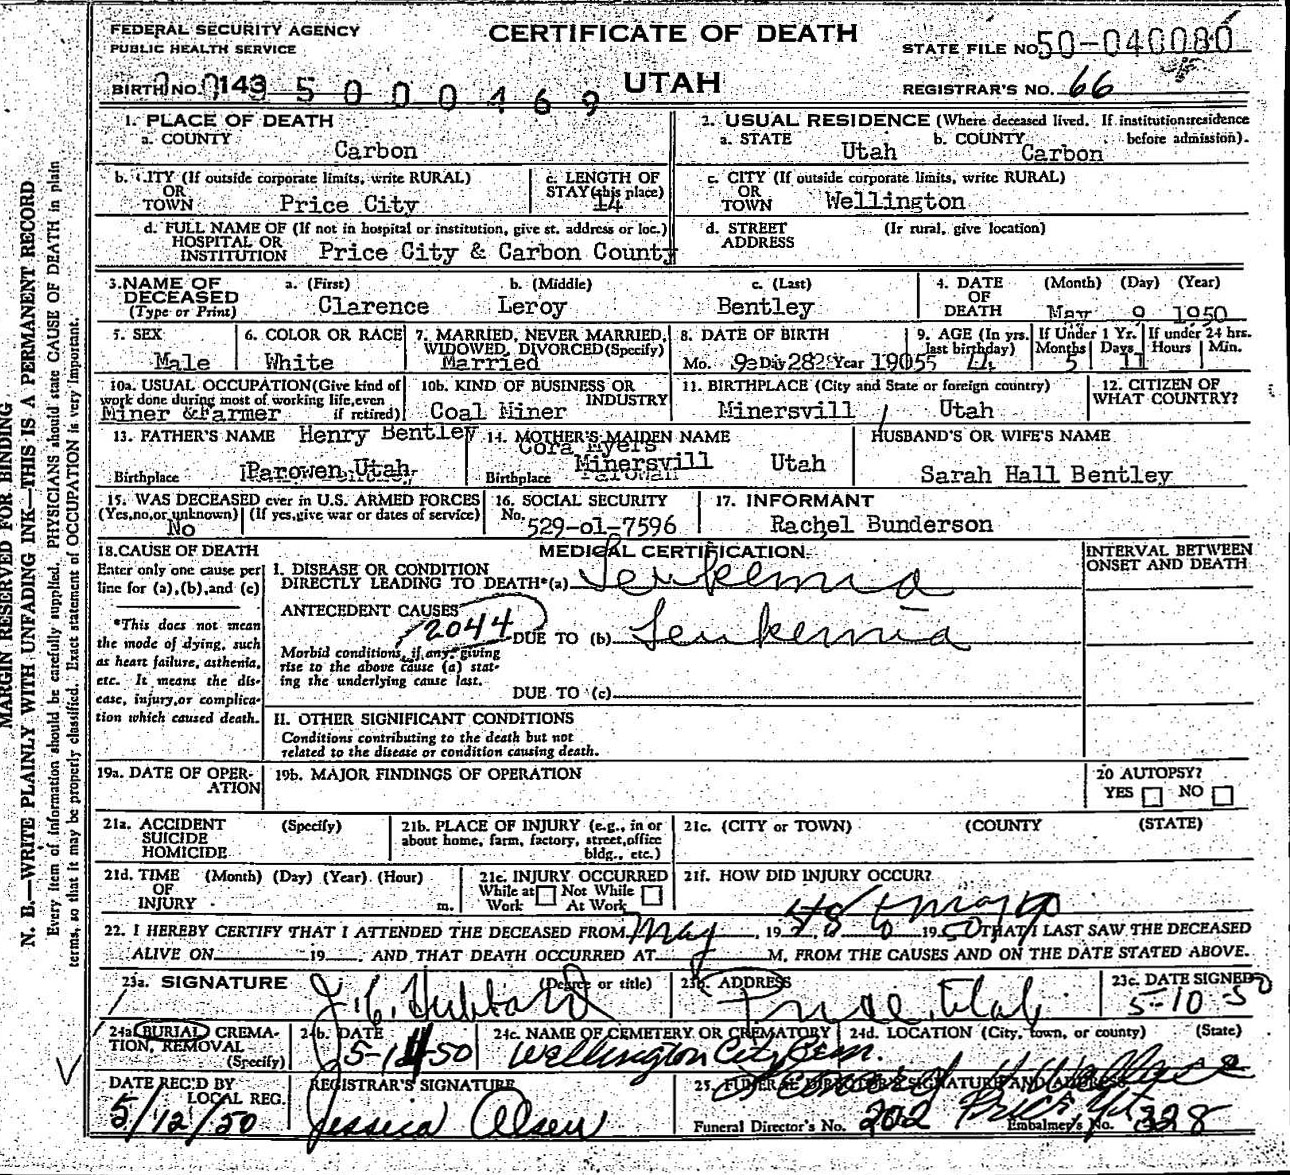 FEDERAL SECURITY AGENCY
PUBLIC HEALTH SERVICE
CERTIFICATE OF DEATH
STATE FILE NO. 50-040080
BIRTH NO. 143 5 0 0 0 4 6 9
UTAH
REGISTRAR'S NO. 66
1. PLACE OF DEATH
a. COUNTY
Carbon
2. USUAL RESIDENCE (Where deceased lived. If institution:residence before admission).
a. STATE Utah b. COUNTY Carbon
b. CITY (If outside corporate limits, write RURAL)
OR
TOWN Price City
c. LENGTH OF
STAY (this place)
14
c. CITY (If outside corporate limits, write RURAL)
OR
TOWN Wellington
d. FULL NAME OF (If not in hospital or institution, give st. address or loc.)
HOSPITAL OR
INSTITUTION Price City & Carbon County
d. STREET (If rural, give location)
ADDRESS
3. NAME OF DECEASED (Type or Print)
a. (First) b. (Middle) c. (Last)
Clarence Leroy Bentley
4. DATE OF DEATH (Month) (Day) (Year)
May 9 1950
5. SEX
Male
6. COLOR OR RACE
White
7. MARRIED, NEVER MARRIED,
WIDOWED, DIVORCED (Specify)
Married
8. DATE OF BIRTH
Mo. 9 Day 28 Year 1905
9. AGE (In yrs. last birthday)
If Under 1 Yr. Months 5 Days 11
If under 24 hrs. Hours Min.
10a. USUAL OCCUPATION (Give kind of
work done during most of working life, even
if retired)
Miner & Farmer
10b. KIND OF BUSINESS OR
INDUSTRY
Coal Miner
11. BIRTHPLACE (City and State or foreign country)
Minersvill, Utah
12. CITIZEN OF
WHAT COUNTRY?
13. FATHER'S NAME Henry Bentley
Birthplace Parowen Utah
14. MOTHER'S MAIDEN NAME
Cora Myers
Birthplace Minersvill Utah
HUSBAND'S OR WIFE'S NAME
Sarah Hall Bentley
15. WAS DECEASED ever in U.S. ARMED FORCES
(Yes, no, or unknown) (If yes, give war or dates of service)
No
16. SOCIAL SECURITY
No. 529-01-7596
17. INFORMANT
Rachel Bunderson
18. CAUSE OF DEATH
Enter only one cause per
line for (a), (b), and (c)
*This does not mean
the mode of dying, such
as heart failure, asthenia,
etc. It means the dis-
ease, injury, or complica-
tion which caused death.
MEDICAL CERTIFICATION
INTERVAL BETWEEN
ONSET AND DEATH
I. DISEASE OR CONDITION
DIRECTLY LEADING TO DEATH*(a) Leukemia
ANTECEDENT CAUSES
2044
DUE TO (b) Leukemia
Morbid conditions, if any, giving
rise to the above cause (a) stat-
ing the underlying cause last.
DUE TO (c)
II. OTHER SIGNIFICANT CONDITIONS
Conditions contributing to the death but not
related to the disease or condition causing death.
19a. DATE OF OPER-
ATION
19b. MAJOR FINDINGS OF OPERATION
20 AUTOPSY?
YES NO
21a. ACCIDENT (Specify)
SUICIDE
HOMICIDE
21b. PLACE OF INJURY (e.g., in or
about home, farm, factory, street, office
bldg., etc.)
21c. (CITY or TOWN) (COUNTY) (STATE)
21d. TIME (Month) (Day) (Year) (Hour)
OF
INJURY m.
21e. INJURY OCCURRED
While at Work Not While At Work
21f. HOW DID INJURY OCCUR?
22. I HEREBY CERTIFY THAT I ATTENDED THE DECEASED FROM May, 1948 to May 9 1950 THAT I LAST SAW THE DECEASED
ALIVE ON 19 AND THAT DEATH OCCURRED AT M. FROM THE CAUSES AND ON THE DATE STATED ABOVE.
23a. SIGNATURE (Degree or title)
J. C. Hubbard
23b. ADDRESS
Price, Utah
23c. DATE SIGNED
5-10-50
24a. BURIAL, CREMA-
TION, REMOVAL
(Specify)
24b. DATE
5-11-50
24c. NAME OF CEMETERY OR CREMATORY
Wellington City Cem.
24d. LOCATION (City, town, or county) (State)
DATE REC'D BY
LOCAL REG.
5/12/50
REGISTRAR'S SIGNATURE
Jessica Olsen
25. FUNERAL DIRECTOR'S SIGNATURE AND ADDRESS
Wallace
Price Ut
Funeral Director's No. 202 Embalmer's No. 328
MARGIN RESERVED FOR BINDING
N. B.—WRITE PLAINLY WITH UNFADING INK—THIS IS A PERMANENT RECORD
Every item of information should be carefully supplied. PHYSICIANS should state CAUSE OF DEATH in plain
terms, so that it may be properly classified. Exact statement of OCCUPATION is very important.